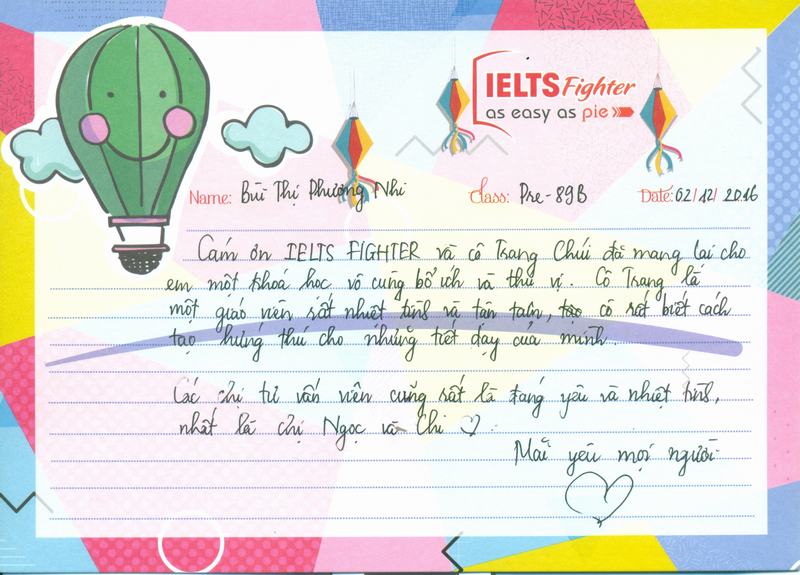 IELTS Fighter
as easy as pie
Name: Bùi Thị Phương Nhi Class: Pre-89B Date: 02/12/2016
Cám ơn IELTS FIGHTER và cô Trang Chúi đã mang lại cho
em một khoá học vô cùng bổ ích và thú vị. Cô Trang là
một giáo viên rất nhiệt tình và tận tâm, cô rất biết cách
tạo hứng thú cho những tiết dạy của mình.
Các chị tư vấn viên cũng rất là đáng yêu và nhiệt tình,
nhất là chị Ngọc và Chi ♡.
Mãi yêu mọi người